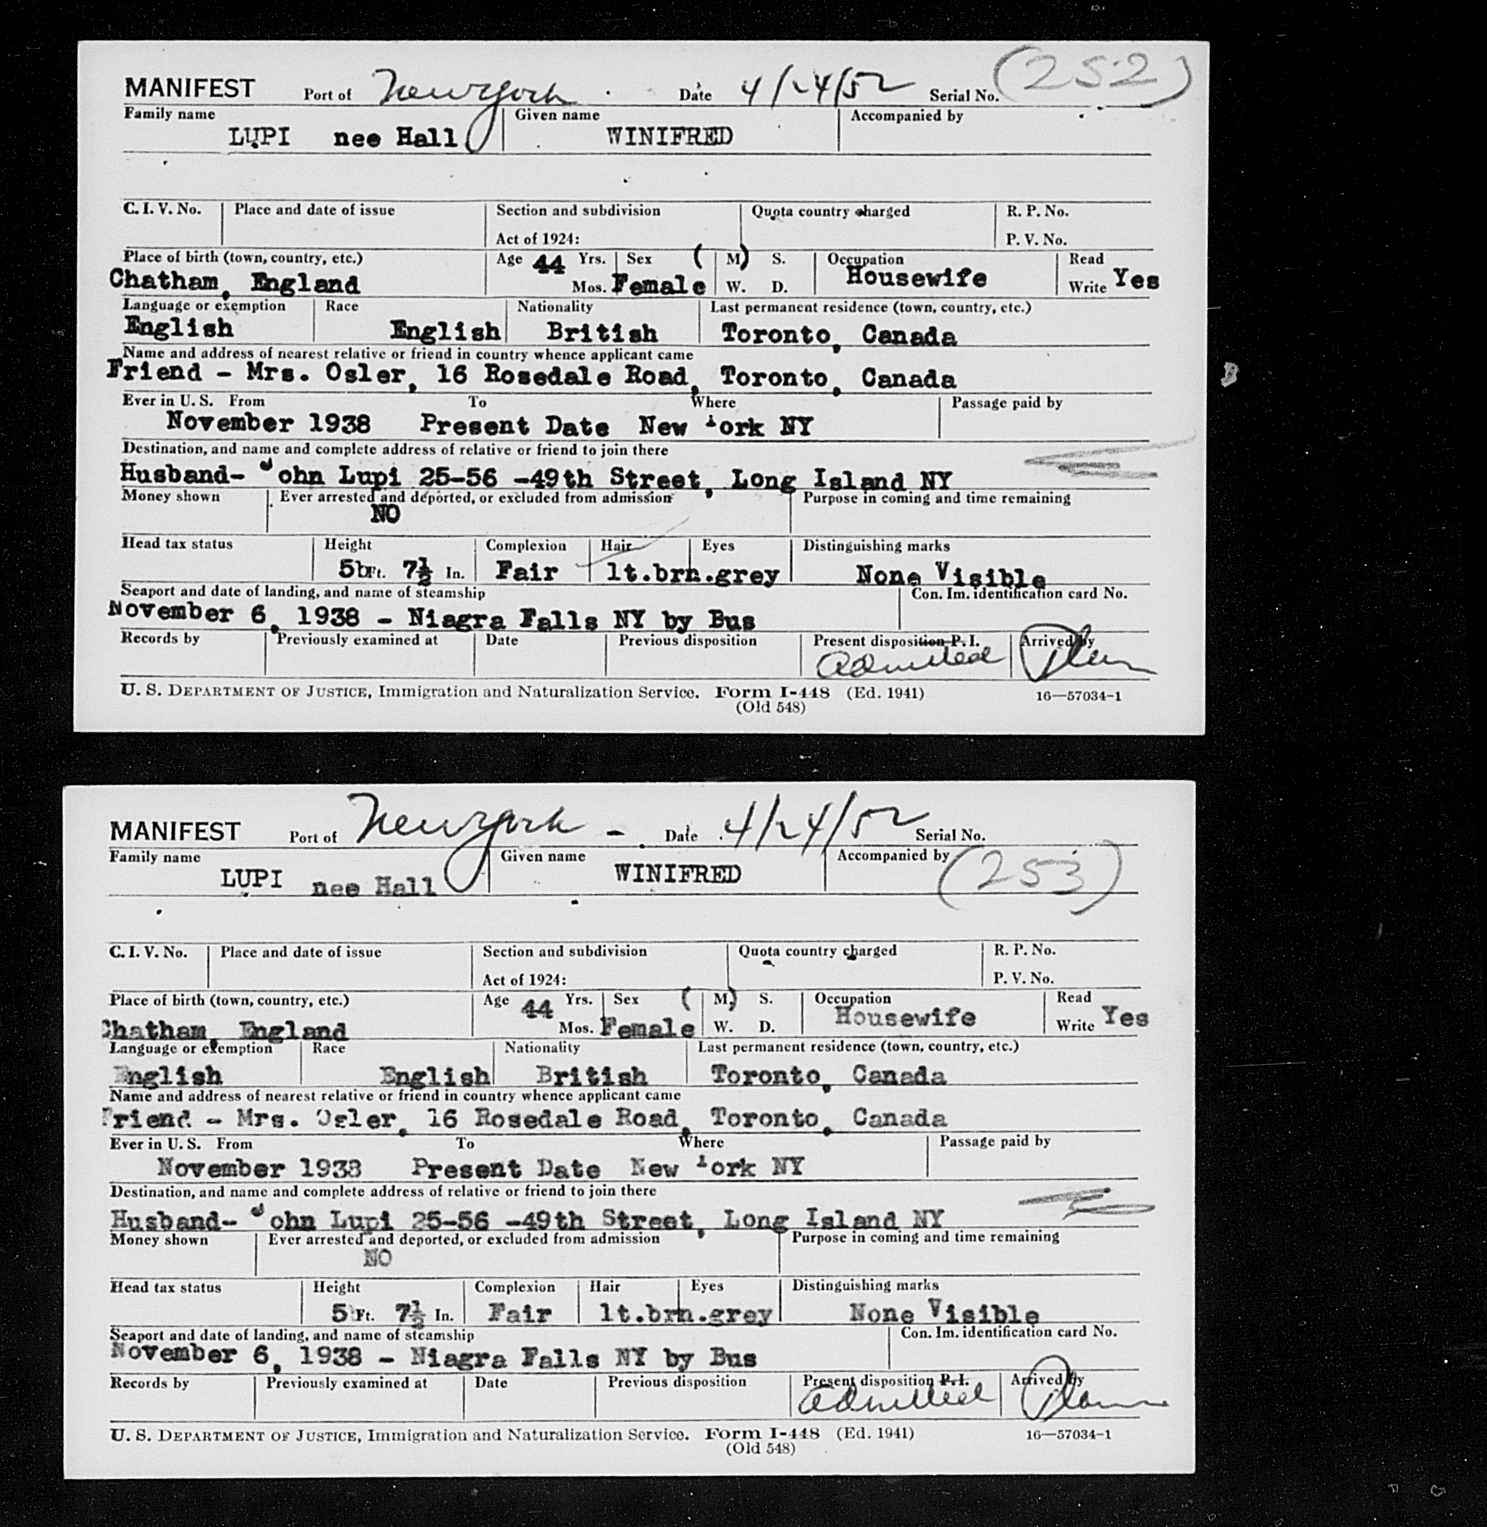 (252)
MANIFEST Port of New York Date 4/24/52 Serial No.
Family name Given name Accompanied by
LUPI nee Hall WINIFRED
C. I. V. No. Place and date of issue Section and subdivision Quota country charged R. P. No.
Act of 1924: P. V. No.
Place of birth (town, country, etc.) Age 44 Yrs. Sex (M) S. Occupation Read
Chatham, England Mos. Female W. D. Housewife Write Yes
Language or exemption Race Nationality Last permanent residence (town, country, etc.)
English English British Toronto, Canada
Name and address of nearest relative or friend in country whence applicant came
Friend - Mrs. Osler, 16 Rosedale Road, Toronto, Canada
Ever in U. S. From To Where Passage paid by
November 1938 Present Date New York NY
Destination, and name and complete address of relative or friend to join there
Husband- John Lupi 25-56 -49th Street, Long Island NY
Money shown Ever arrested and deported, or excluded from admission Purpose in coming and time remaining
NO
Head tax status Height Complexion Hair Eyes Distinguishing marks
5 Ft. 7½ In. Fair lt.brn. grey None Visible
Seaport and date of landing, and name of steamship Con. Im. identification card No.
November 6, 1938 - Niagra Falls NY by Bus
Records by Previously examined at Date Previous disposition Present disposition P. I. Arrived by
admitted
U. S. DEPARTMENT OF JUSTICE, Immigration and Naturalization Service. Form I-448 (Ed. 1941) 16—57034-1
(Old 548)
MANIFEST Port of New York - Date 4/24/52 Serial No.
Family name Given name Accompanied by (253)
LUPI nee Hall WINIFRED
C. I. V. No. Place and date of issue Section and subdivision Quota country charged R. P. No.
Act of 1924: P. V. No.
Place of birth (town, country, etc.) Age 44 Yrs. Sex (M) S. Occupation Read
Chatham, England Mos. Female W. D. Housewife Write Yes
Language or exemption Race Nationality Last permanent residence (town, country, etc.)
English English British Toronto, Canada
Name and address of nearest relative or friend in country whence applicant came
Friend - Mrs. Osler, 16 Rosedale Road, Toronto, Canada
Ever in U. S. From To Where Passage paid by
November 1938 Present Date New York NY
Destination, and name and complete address of relative or friend to join there
Husband- John Lupi 25-56 -49th Street, Long Island NY
Money shown Ever arrested and deported, or excluded from admission Purpose in coming and time remaining
NO
Head tax status Height Complexion Hair Eyes Distinguishing marks
5 Ft. 7½ In. Fair lt.brn. grey None Visible
Seaport and date of landing, and name of steamship Con. Im. identification card No.
November 6, 1938 - Niagra Falls NY by Bus
Records by Previously examined at Date Previous disposition Present disposition P. I. Arrived by
admitted
U. S. DEPARTMENT OF JUSTICE, Immigration and Naturalization Service. Form I-448 (Ed. 1941) 16—57034-1
(Old 548)